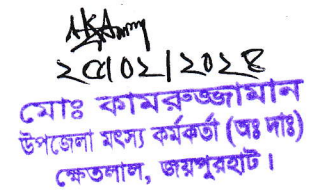 ২৫/০২/২০২৪
মোঃ কামরুজ্জামান
উপজেলা মৎস্য কর্মকর্তা (অঃ দাঃ)
ক্ষেতলাল, জয়পুরহাট।